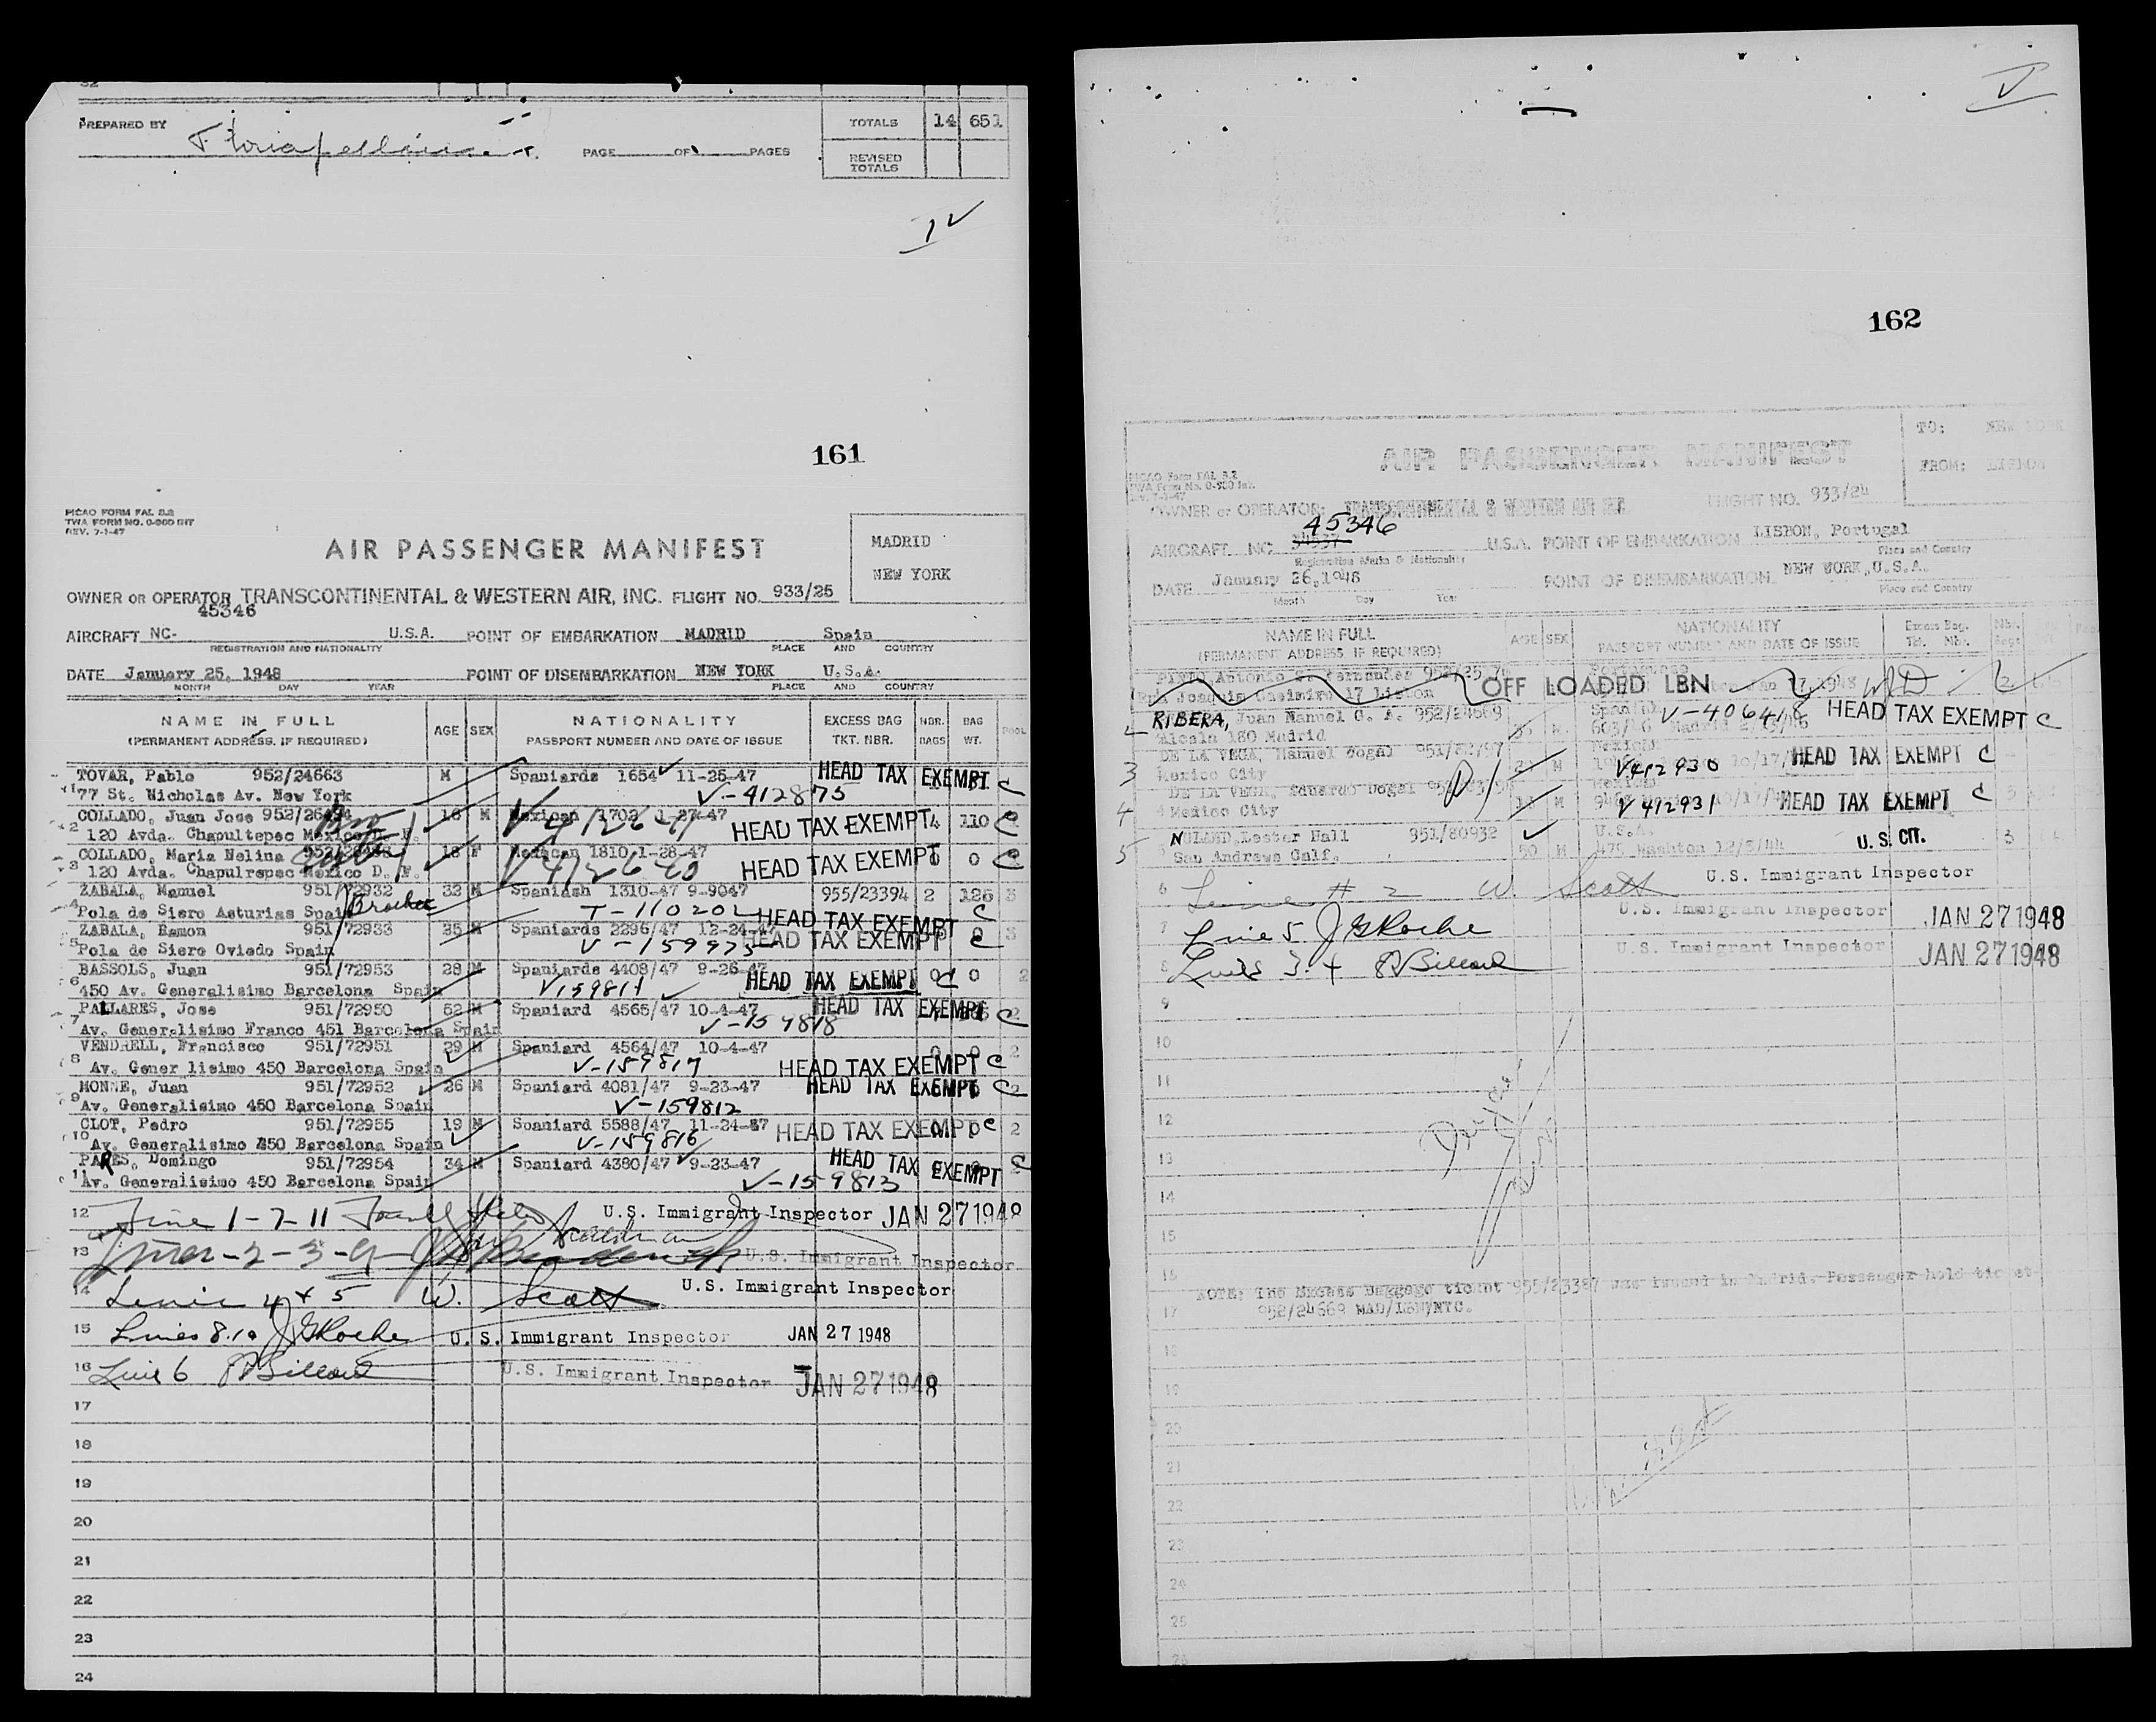 PREPARED BY
PAGE OF PAGES
TOTALS 14 651
REVISED TOTALS
IV
161
PICAO FORM FAL 2.2
TWA FORM NO. 0-900 INT
REV. 7-1-47
AIR PASSENGER MANIFEST
MADRID
NEW YORK
OWNER OR OPERATOR TRANSCONTINENTAL & WESTERN AIR, INC. FLIGHT NO. 933/25
45346
AIRCRAFT NC- U.S.A. POINT OF EMBARKATION MADRID Spain
REGISTRATION AND NATIONALITY PLACE AND COUNTRY
DATE January 25, 1948 POINT OF DISEMBARKATION NEW YORK U.S.A.
MONTH DAY YEAR PLACE AND COUNTRY
NAME IN FULL
(PERMANENT ADDRESS, IF REQUIRED)
AGE SEX
NATIONALITY
PASSPORT NUMBER AND DATE OF ISSUE
EXCESS BAG TKT. NBR.
NBR. BAGS
BAG WT.
POOL
TOVAR, Pablo 952/24663 M Spaniards 1654 11-25-47 HEAD TAX EXEMPT C
1 77 St. Nicholas Av. New York V-412875
COLLADO, Juan Jose 18 M Mexican 1702 1-27-47 HEAD TAX EXEMPT 4 110 C
2 120 Avda. Chapultepec Mexico D. F.
COLLADO, Maria Nelina 18 F Mexican 1810 1-28-47 HEAD TAX EXEMPT 0 C
3 120 Avda. Chapulrepec Mexico D. F.
ZABALA, Manuel 951/72932 32 M Spaniash 1310-47 9-9047 955/23394 2 126 3
4 Pola de Siero Asturias Spain Brother T-110202 HEAD TAX EXEMPT C
ZABALA, Ramon 951/72933 35 M Spaniards 2296/47 12-24-47 HEAD TAX EXEMPT 3
5 Pola de Siero Oviedo Spain V-159975 C
BASSOLS, Juan 951/72953 28 M Spaniards 4408/47 9-26-47 HEAD TAX EXEMPT C 0 2
6 450 Av. Generalisimo Barcelona Spain V159811
PALLARES, Jose 951/72950 52 M Spaniard 4565/47 10-4-47 HEAD TAX EXEMPT C
7 Av. Generalisimo Franco 451 Barcelona Spain V-159818
VENDRELL, Francisco 951/72951 29 M Spaniard 4564/47 10-4-47 2
8 Av. Gener lisimo 450 Barcelona Spain V-159817 HEAD TAX EXEMPT C
MONNE, Juan 951/72952 26 M Spaniard 4081/47 9-23-47 HEAD TAX EXEMPT C 2
9 Av. Generalisimo 450 Barcelona Spain V-159812
CLOT, Pedro 951/72955 19 M Spaniard 5588/47 11-24-47 HEAD TAX EXEMPT C 2
10 Av. Generalisimo 450 Barcelona Spain V-159816
PARES, Domingo 951/72954 34 M Spaniard 4380/47 9-23-47 HEAD TAX EXEMPT C
11 Av. Generalisimo 450 Barcelona Spain V-159813
12 Line 1-7-11 U.S. Immigrant Inspector JAN 27 1948
13 Lines-2-3-9 U.S. Immigrant Inspector
14 Lines 4 + 5 W. Scott U.S. Immigrant Inspector
15 Lines 8.10 J G Roche U.S. Immigrant Inspector JAN 27 1948
16 Line 6 U.S. Immigrant Inspector JAN 27 1948
17
18
19
20
21
22
23
24
V
162
TO: NEW YORK
AIR PASSENGER MANIFEST
FROM: LISBON
PICAO Form FAL 2.2
TWA Form No. 0-900 Int.
Rev. 7-1-47
OWNER or OPERATOR: TRANSCONTINENTAL & WESTERN AIR INC. FLIGHT NO. 933/24
45346
AIRCRAFT NC U.S.A. POINT OF EMBARKATION LISBON, Portugal
Registration Marks & Nationality Place and Country
DATE January 26,1948 POINT OF DISEMBARKATION NEW YORK,U.S.A.
Month Day Year Place and Country
NAME IN FULL
(PERMANENT ADDRESS, IF REQUIRED)
AGE SEX
NATIONALITY
PASSPORT NUMBER AND DATE OF ISSUE
Excess Bag. Tkt. Nbr.
Nbr. Bags
PINTO, Antonio
Rua Joaquim Casimiro 17 Lisbon OFF LOADED LBN
RIBERA, Juan Manuel G. A. 952/24669 V-406418 HEAD TAX EXEMPT C
2 Alcala 180 Madrid
DE LA VEGA, Manuel Dogal M V412930 HEAD TAX EXEMPT C
3 Mexico City
DE LA VEGA, Eduardo Dogal M V412931 HEAD TAX EXEMPT C
4 Mexico City
NULAND, Lester Hall 951/80932 50 M U.S.A. U.S. CIT. 3
5 San Andrews Calf.
6 Line # 2 W. Scott U.S. Immigrant Inspector
7 Line 5 J G Roche U.S. Immigrant Inspector JAN 27 1948
8 Lines 3.4 U.S. Immigrant Inspector JAN 27 1948
9
10
11
12
13
14
15
16 NOTE: The Excess Baggage ticket 955/23387 was issued in Madrid. Passenger hold ticket
17 952/24669 MAD/LBN/NYC.
18
19
20
21
22
23
24
25
26